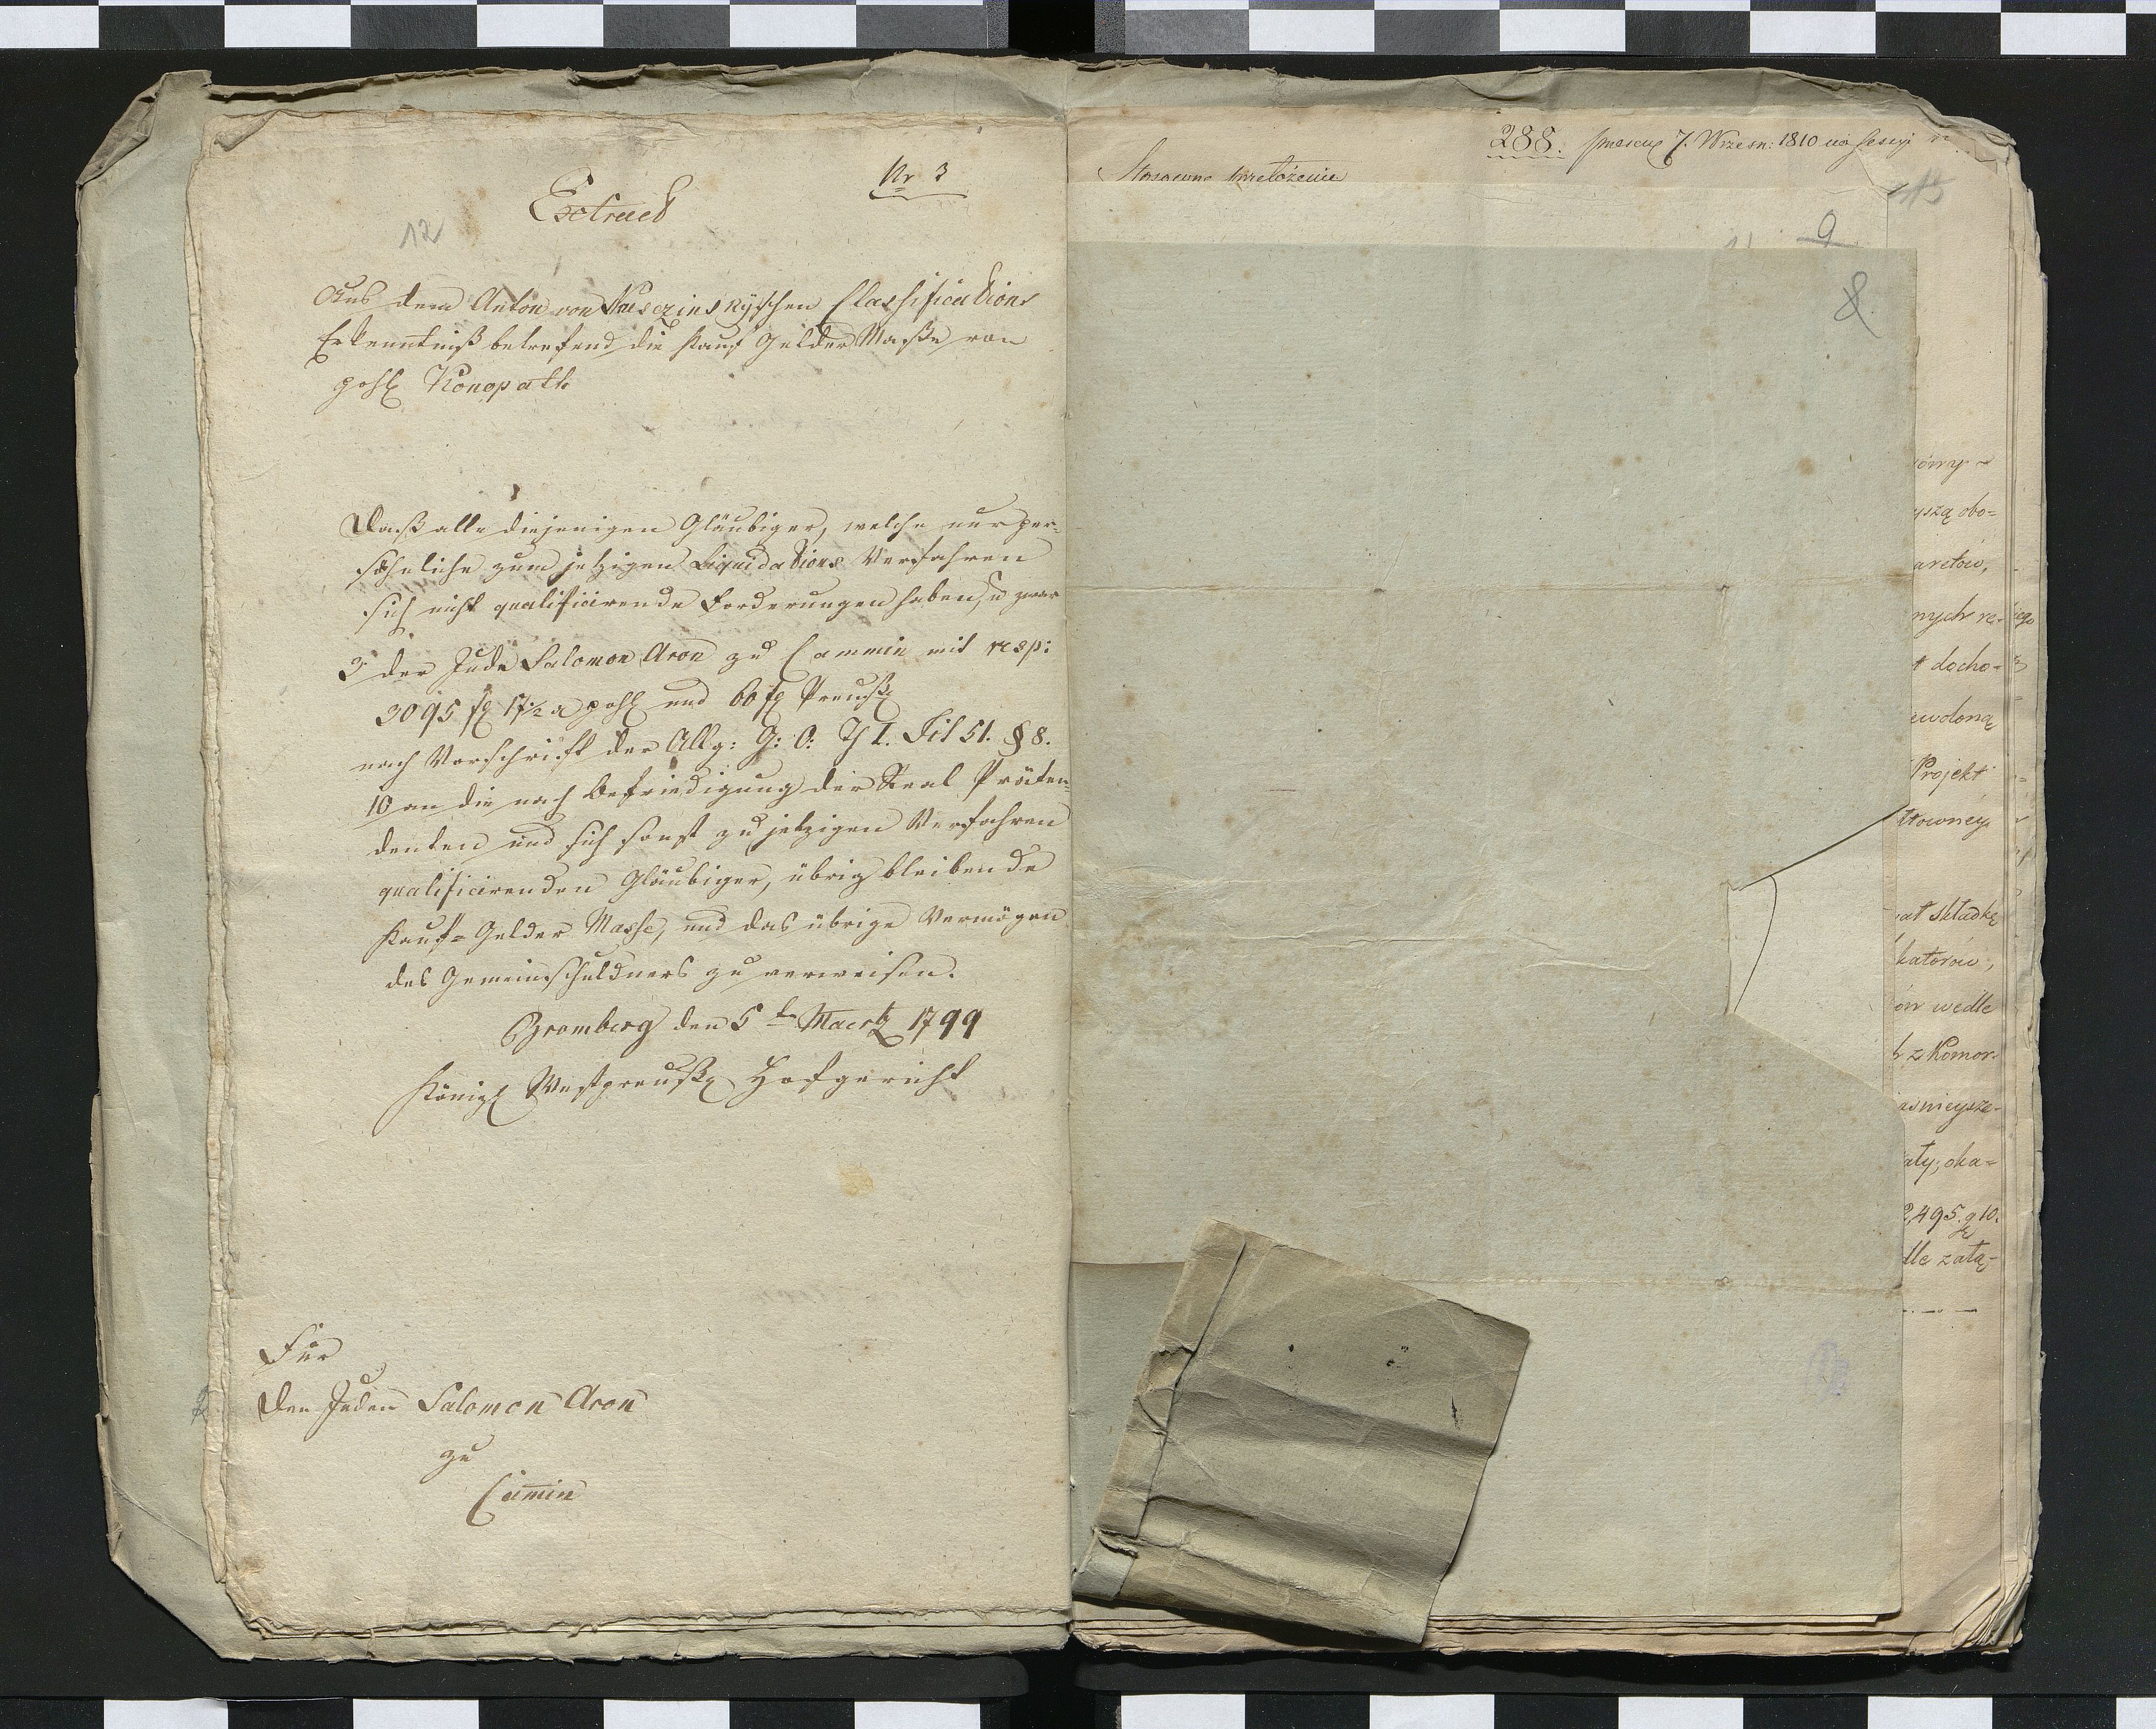 Nr 3
Extract
12
Aus dem Anton von Klassifications
Erkenntniß betrefend die Kauf Gelder Maße von
pohl Konopath
Daß alle diejenigen Gläubiger, welche nur per-
söhnliche zum jetzigen Liquidations Verfahren
sich nicht qualificirende Forderungen haben, u zwar
3 der Jude Salomon Aron zu Cammin mit resp:
3095 fl 17½ g pohl und 60 fl Preuß
nach Vorschrift der Allg: G: O: Th I. Tit 51. § 8.
10 an die nach Befriedigung der Real Präten-
denten und sich sonst zu jetzigen Verfahren
qualificirenden Gläubiger, übrig bleibende
Kauf-Gelder Masse, und das übrige Vermögen
des Gemeinschuldners zu verweisen.
Bromberg den 5 ten Maertz 1799
Königl Westpreuß Hofgericht
Für
den Juden Salomon Aron
zu
Camin
288. 7. Wrzesn: 1810 na Sessyi
Stosowne
15
9
8
yszą obo-
nych re-
docho-
Projekt
składkę
katorów,
ón wedle
z Komor-
aty, oka-
2,495. g 10.
dle załą-